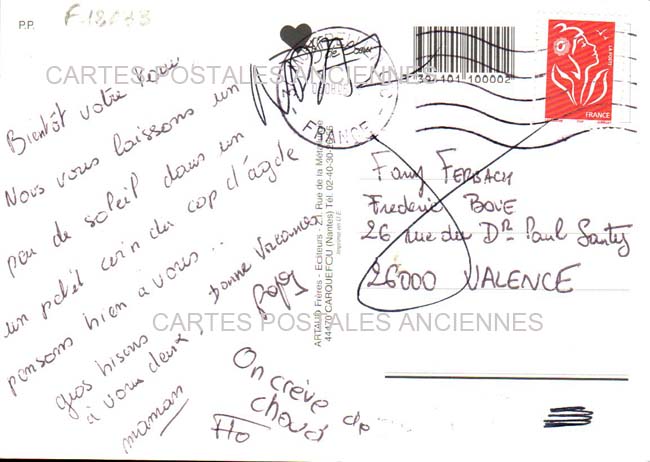 P.P.
F-18033
CARTES POSTALES ANCIENNES
Bientôt votre tour
Nous vous laissons un
peu de soleil dans un
un petit coin du cap d'agde
pensons bien a vous...
gros bisous
à vous deux,
maman
Bonne Vacances
papy
On crève de
chaud
FRANCE
39 101 100002
LA POSTE
FRANCE
ARTAUD Frères - Editeurs - Rue de la Métallurgie
44470 CARQUEFOU (Nantes) Tél. 02-40-30-
Imprimé en U.E.
Fany FERBACH
Frederic BOUE
26 rue du Dr Paul Santy
26000 VALENCE
CARTES POSTALES ANCIENNES